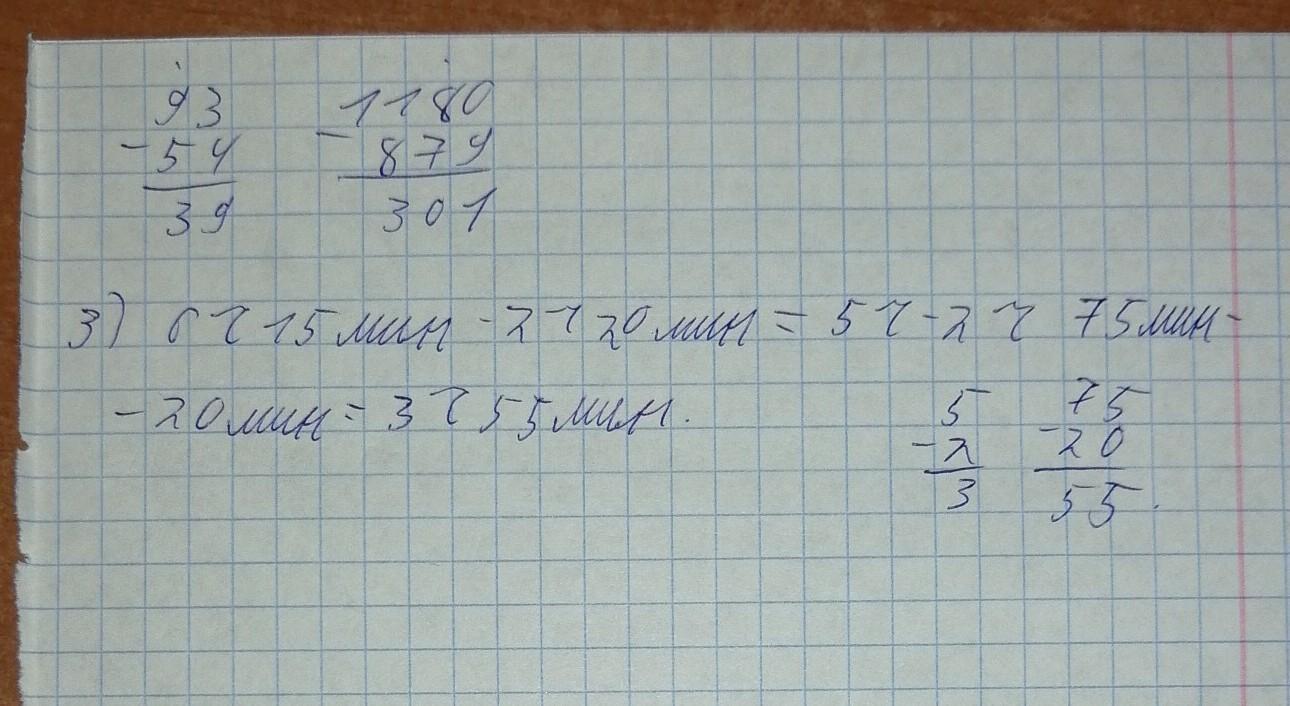 93 1180
-54 - 879
39 301
3) 6ч 15 мин - 2ч 20 мин = 5ч - 2ч 75 мин -
- 20 мин = 3ч 55 мин.
5 75
-2 -20
3 55.